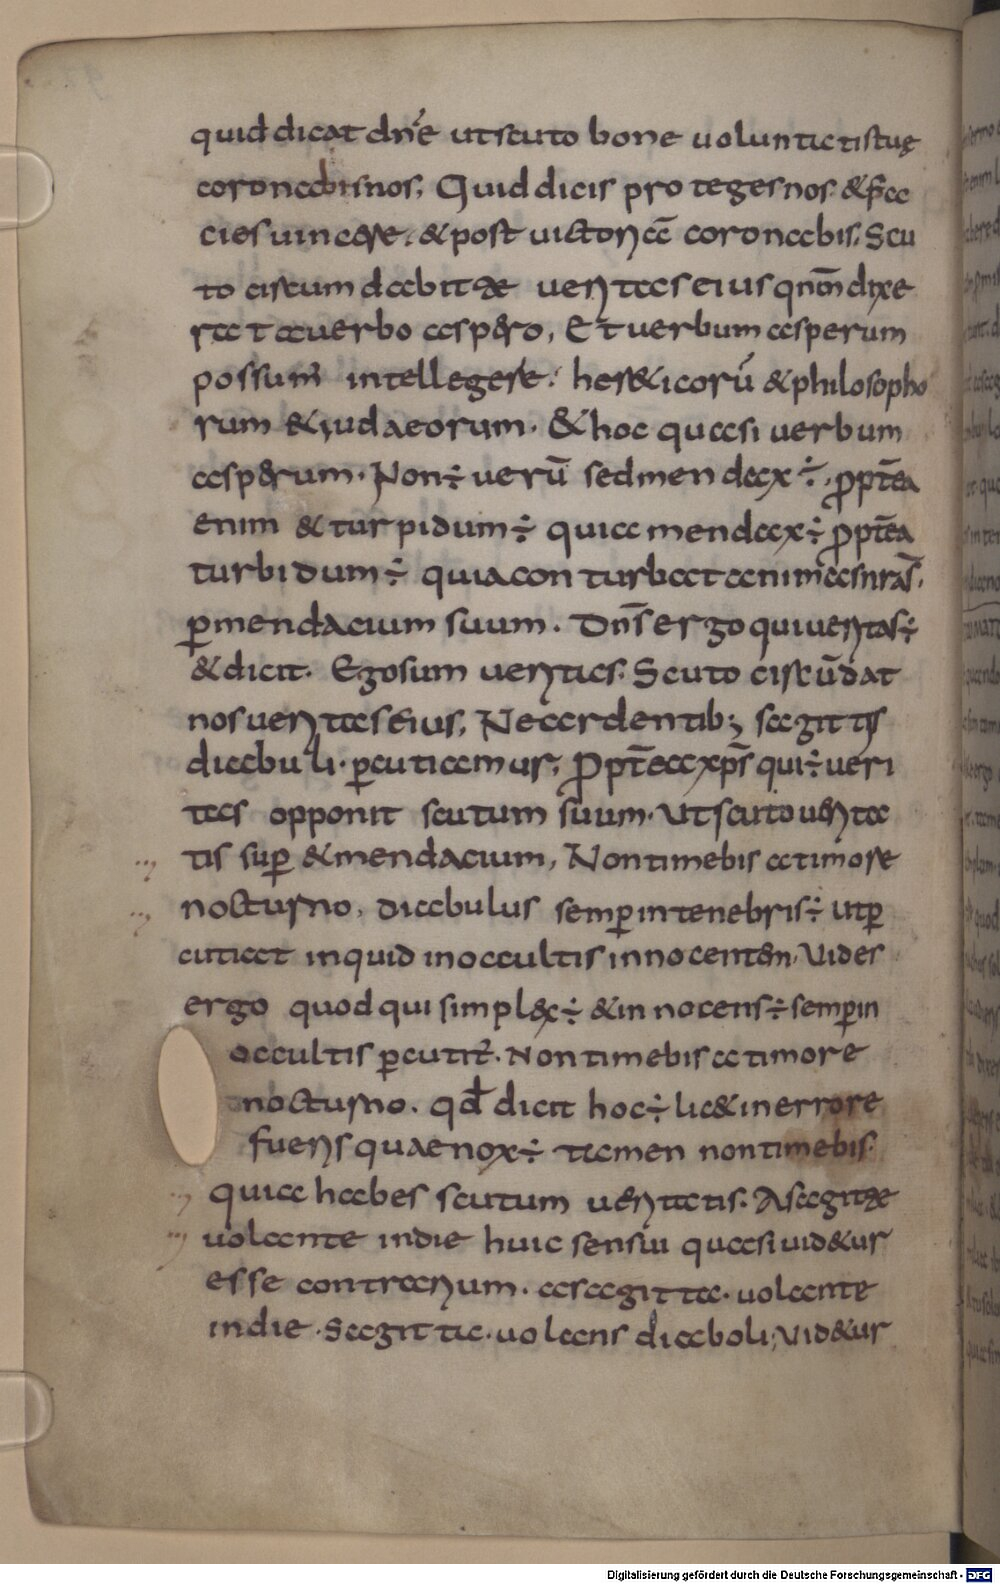 quid dicat dn̄e ut scuto bone uoluntatis tuę
coronabis nos; Quid dicis proteges nos &fa
cies uincere. &post uictoriā coronabis; Scu
to circumdabit te ueritas eius qnm̄ dixe
rat auerbo aspero, Et uerbum asperum
possum' intellegere. her&icorū &philosopho
rum &iudaeorum. &hoc quasi uerbum
asperum. Non÷ uerū sed mendax÷. ꝓpt̄ea
enim &turpidum÷ quia mendax÷ ꝓpt̄ea
turbidum÷ quia conturbat animas nr̄as.
ꝑ mendacium suum. Dn̄s ergo qui ueritas÷
&dicit. Ego sum ueritas. Scuto circūdat
nos ueritas eius, Ne ardentib; sagittis
diabuli. ꝑcutiamus; Propt̄ea xp̄s qui÷ ueri
tas opponit scutum suum. ut scuto uerita
tis sup&mendacium, Non timebis a timore
nocturno, diabulus semꝑ in tenebris÷ utꝑ
cutiat inquid in occultis innocentem. Uides
ergo quod qui simplex÷ &innocens÷ semꝑ in
occultis ꝑcutit'. Non timebis a timore
nocturno. qđ dicit hoc÷ lic& in errore
fueris quae nox÷ tamen non timebis.
quia habes scutum ueritatis. A sagitta
uolante in die huic sensui quasi uid&ur
esse contrarium. a sagitta. uolante
in die. Sagitta. uolans diaboli; uid&ur
Digitalisierung gefördert durch die Deutsche Forschungsgemeinschaft - DFG